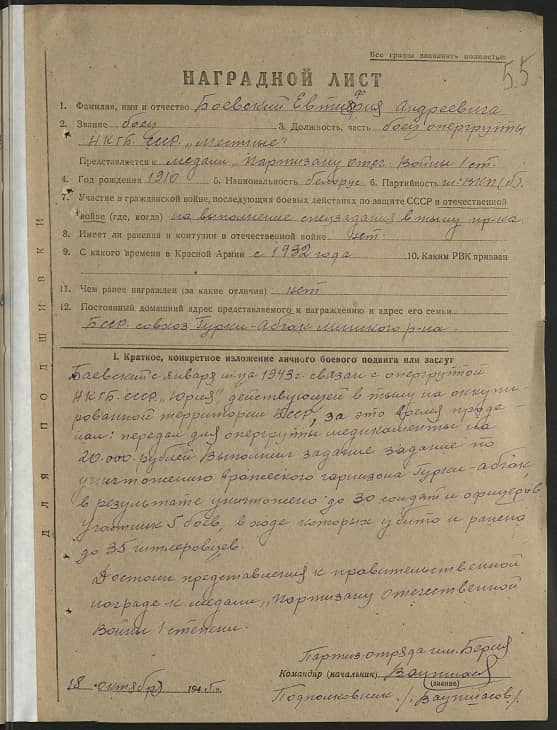 Все графы заполнять полностью
55
НАГРАДНОЙ ЛИСТ
1. Фамилия, имя и отчество Боевский Евтифия Андреевича
2. Звание боец 3. Должность, часть боец опергруппы
НКГБ СССР „Местные"
Представляется к медали „Партизану Отеч. Войны 1 ст.
4. Год рождения 1910 5. Национальность белорус 6. Партийность чл. ВКП(б)
7. Участие в гражданской войне, последующих боевых действиях по защите СССР и отечественной
войне (где, когда) на выполнение спецзадания в тылу пр-ка
8. Имеет ли ранения и контузии в отечественной войне нет
9. С какого времени в Красной Армии с 1932 года 10. Каким РВК призван
11. Чем ранее награжден (за какие отличия) нет
12. Постоянный домашний адрес представляемого к награждению и адрес его семьи
БССР совхоз Гурки- Минского р-на
I. Краткое, конкретное изложение личного боевого подвига или заслуг
Баевский с января м-ца 1943 г. связан с опергруппой
НКГБ СССР „Юрия" действующей в тылу на оккупи
рованной территории БССР, за это время проде
лал: передал для опергруппы медикаменты на
20.000 рублей. Выполнил задание задание по
уничтожению вражеского гарнизона Гурки-
в результате уничтожено до 30 солдат и офицеров
Участник 5 боев, в ходе которых убито и ранено
до 35 гитлеровцев.
Достоин представления к правительственной
награде к медали „Партизану отечественной
Войны 1 степени.
Партиз. отряда им. Берия
Командир (начальник) Ваупшасов
(звание)
Подполковник /. Ваупшасов./
18 октября 1945 г.
ДЛЯ ПОДШИВКИ